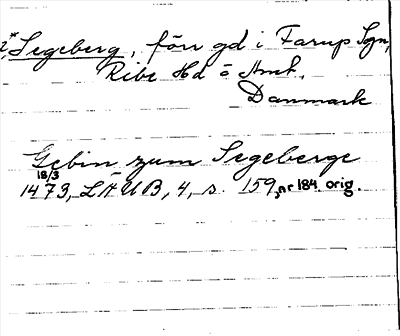 *Segeberg, förr gd i Farup Sgn,
Ribe Hd o Amt.
Danmark
Gebin zum Segeberge
18/3
1473, LÄUB, 4, s. 159, nr 184 orig.